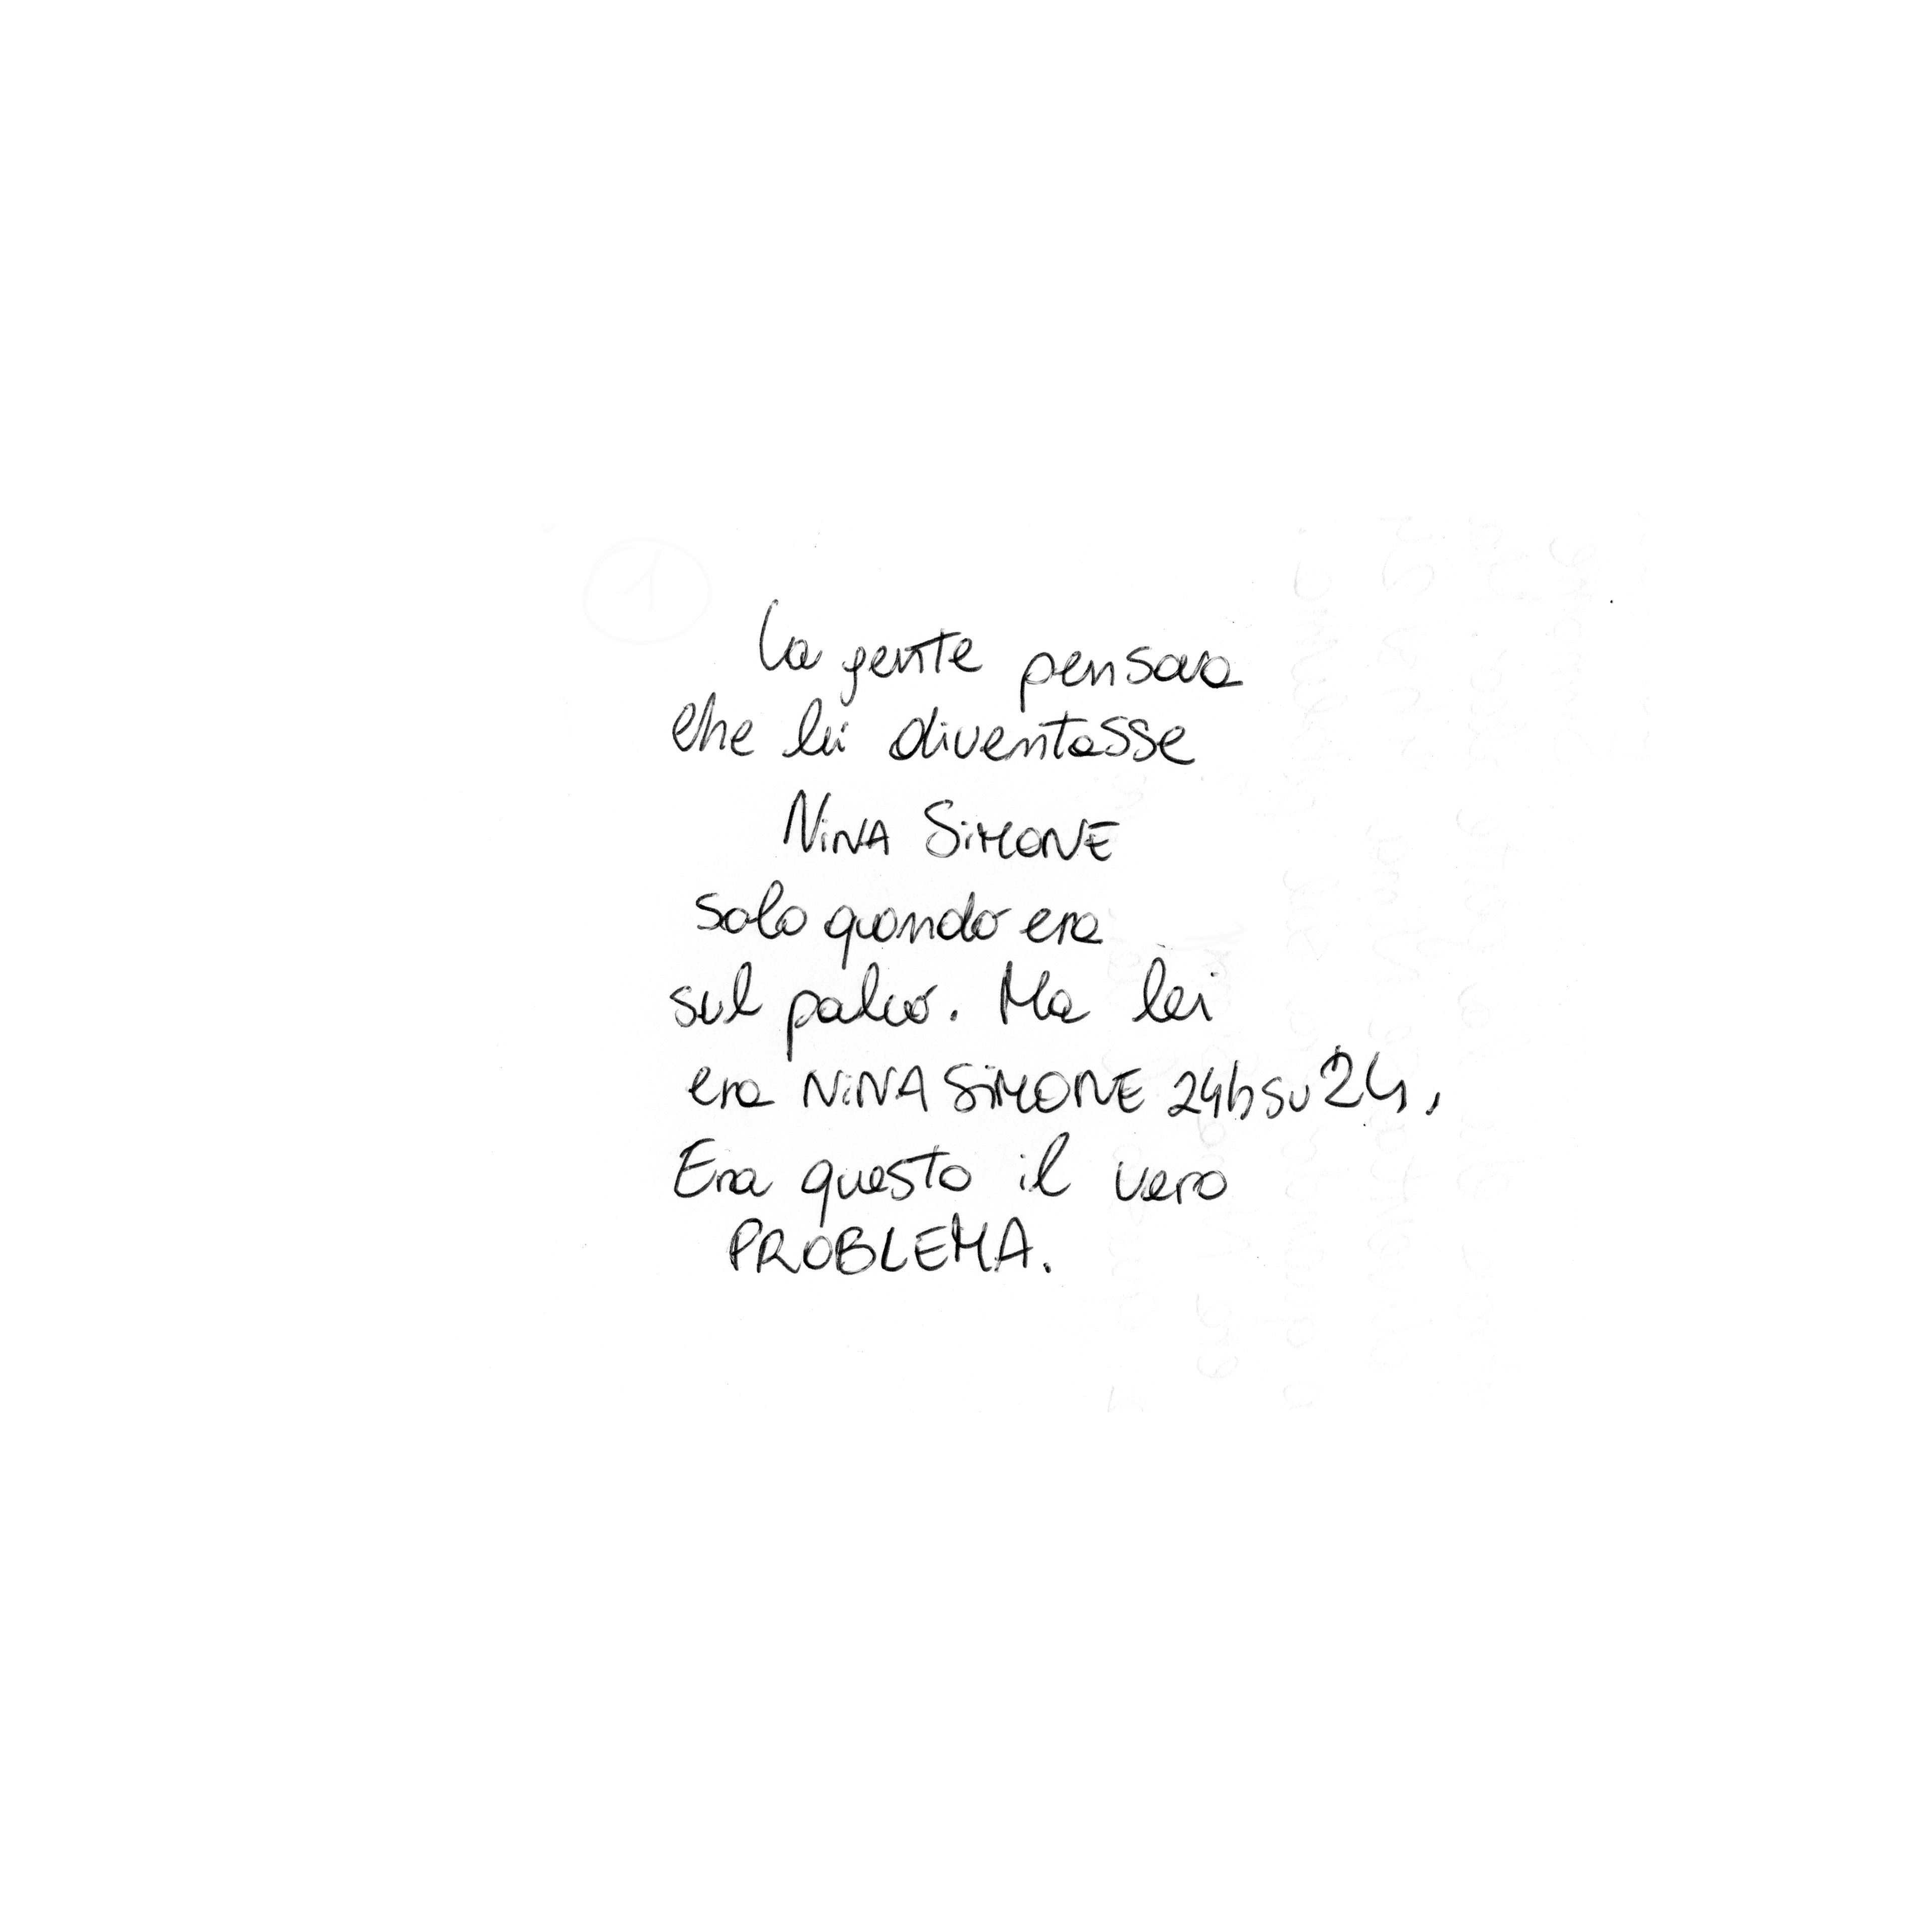 1
La gente pensava
che lei diventasse
NiNA SiMONE
solo quando era
sul palco. Ma lei
era NiNA SiMONE 24h su 24,
Era questo il vero
PROBLEMA.